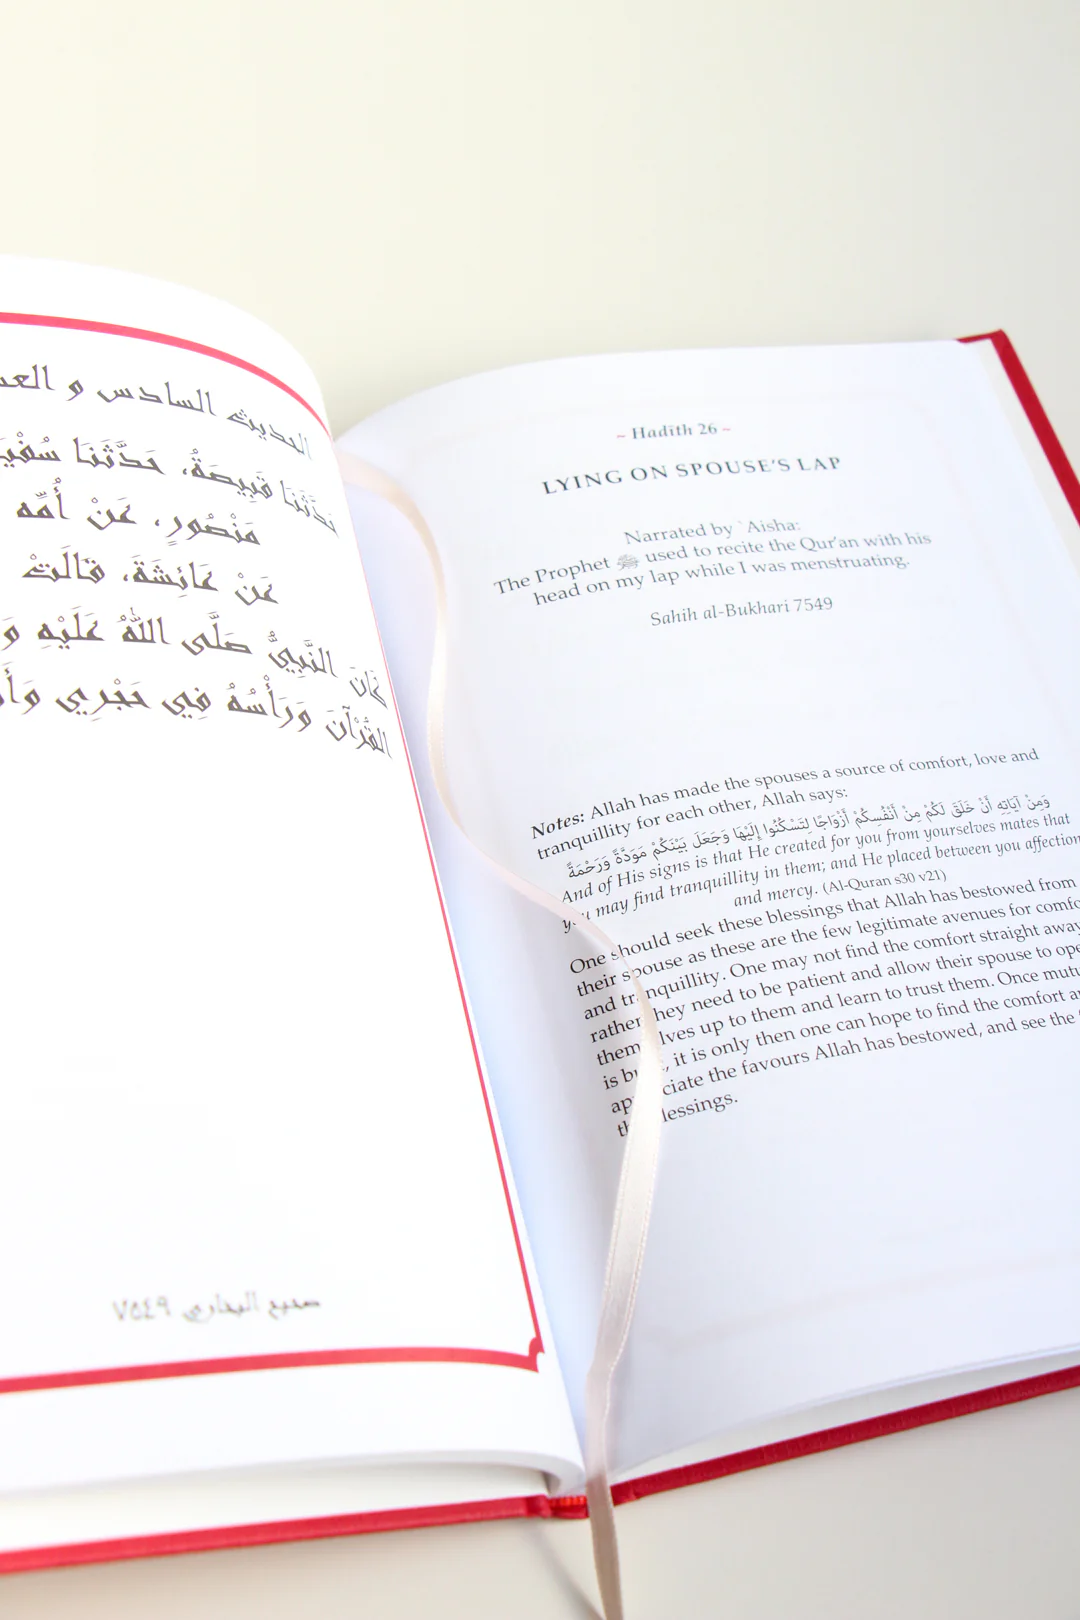 الحديث السادس و
حَدَّثَنَا قَبِيصَةُ، حَدَّثَنَا
مَنْصُورٍ، عَنْ أُمِّه
عَنْ عَائِشَةَ، قَالَتْ
كَانَ النَّبِيُّ صَلَّى اللهُ عَلَيْهِ وَ
القُرْآنَ وَرَأْسُهُ فِي حَجْرِي
صحيح البخاري ٧٥٤٩
~ Hadīth 26 ~
LYING ON SPOUSE'S LAP
Narrated by `Aisha:
The Prophet ﷺ used to recite the Qur'an with his
head on my lap while I was menstruating.
Sahih al-Bukhari 7549
Notes: Allah has made the spouses a source of comfort, love and
tranquillity for each other, Allah says:
وَمِنْ آيَاتِهِ أَنْ خَلَقَ لَكُمْ مِنْ أَنْفُسِكُمْ أَزْوَاجًا لِتَسْكُنُوا إِلَيْهَا وَجَعَلَ بَيْنَكُمْ مَوَدَّةً وَرَحْمَةً
And of His signs is that He created for you from yourselves mates that
you may find tranquillity in them; and He placed between you affection
and mercy. (Al-Quran s30 v21)
One should seek these blessings that Allah has bestowed from
their spouse as these are the few legitimate avenues for
and tranquillity. One may not find the comfort straight away
rather they need to be patient and allow their spouse to
themselves up to them and learn to trust them. Once
is , it is only then one can hope to find the comfort
appreciate the favours Allah has bestowed, and see the
blessings.